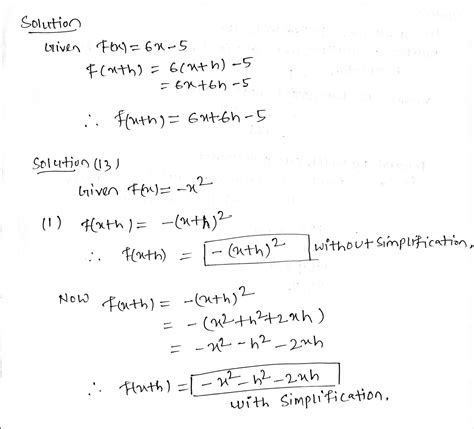 Solution
Given f(x) = 6x-5
f(x+h) = 6(x+h) -5
= 6x+6h -5
∴ f(x+h) = 6x+6h-5
Solution (13)
Given f(x) = -x²
(1) f(x+h) = -(x+h)²
∴ f(x+h) = -(x+h)² without simplification.
Now f(x+h) = -(x+h)²
= -(x²+h²+2xh)
= -x² -h² -2xh
∴ f(x+h) = -x²-h²-2xh
with simplification.